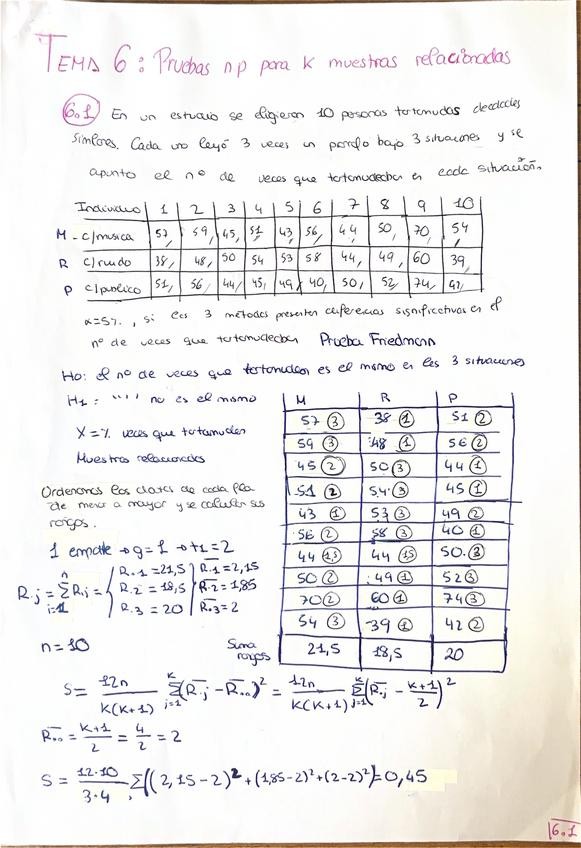 TEMA 6: Pruebas np para k muestras relacionadas
6.1 En un estudio se eligieron 10 personas tartamudas de edades
similares. Cada uno leyó 3 veces un párrafo bajo 3 situaciones y se
apunto el nº de veces que tartamudeaba en cada situación.
Individuo | 1 | 2 | 3 | 4 | 5 | 6 | 7 | 8 | 9 | 10
M - c/musica | 57, | 59, | 45, | 51, | 43, | 56, | 44, | 50, | 70, | 54,
R c/ruido | 38, | 48, | 50 | 54 | 53 | 58 | 44, | 49, | 60 | 39,
P c/publico | 51, | 56 | 44, | 45, | 49, | 40, | 50, | 52, | 74, | 42,
α=5%, si los 3 métodos presentan diferencias significativas en el
nº de veces que tartamudeaban Prueba Friedmann
Ho: el nº de veces que tartamudean es el mismo en las 3 situaciones
H1: "" no es el mismo
X = % veces que tartamudea
Muestras relacionadas
Ordenamos los datos de cada fila
de menor a mayor y se calculan sus
rangos.
1 empate → g=1 → t1=2
R.j = Σ Rij = { R.1 = 21,5 R.2 = 18,5 R.3 = 20 { R.1 = 2,15 R.2 = 1,85 R.3 = 2
n
i=1
n=10
M | R | P
57 (3) | 38 (1) | 51 (2)
59 (3) | 48 (1) | 56 (2)
45 (2) | 50 (3) | 44 (1)
51 (2) | 54 (3) | 45 (1)
43 (1) | 53 (3) | 49 (2)
56 (2) | 58 (3) | 40 (1)
44 (1,5) | 44 (1,5) | 50 (3)
50 (2) | 49 (1) | 52 (3)
70 (2) | 60 (1) | 74 (3)
54 (3) | 39 (1) | 42 (2)
Suma rangos | 21,5 | 18,5 | 20
S = 12n / K(K+1) Σ(R.j - R..)² = 12n / K(K+1) Σ(R.j - K+1/2)²
R.. = K+1/2 = 4/2 = 2
S = 12·10 / 3·4 · Σ((2,15-2)² + (1,85-2)² + (2-2)²) = 0,45
6.1